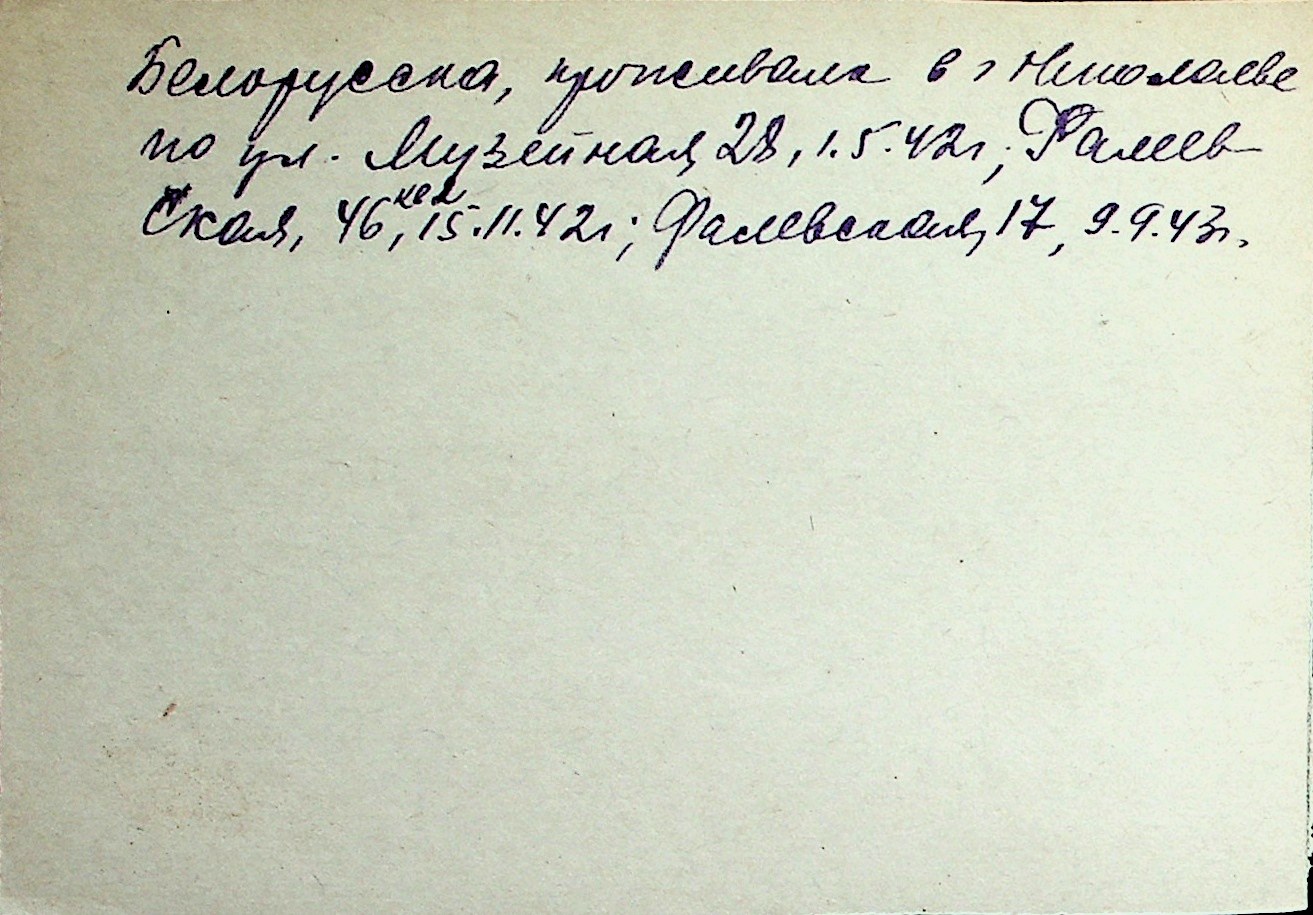 Белорусска, проживала в г Николаеве
по ул. Музейная, 28, 1.5.42г; Фалеев-
ская, 46, кв 2 15.11.42г; Фалевская, 17, 9.9.43г.